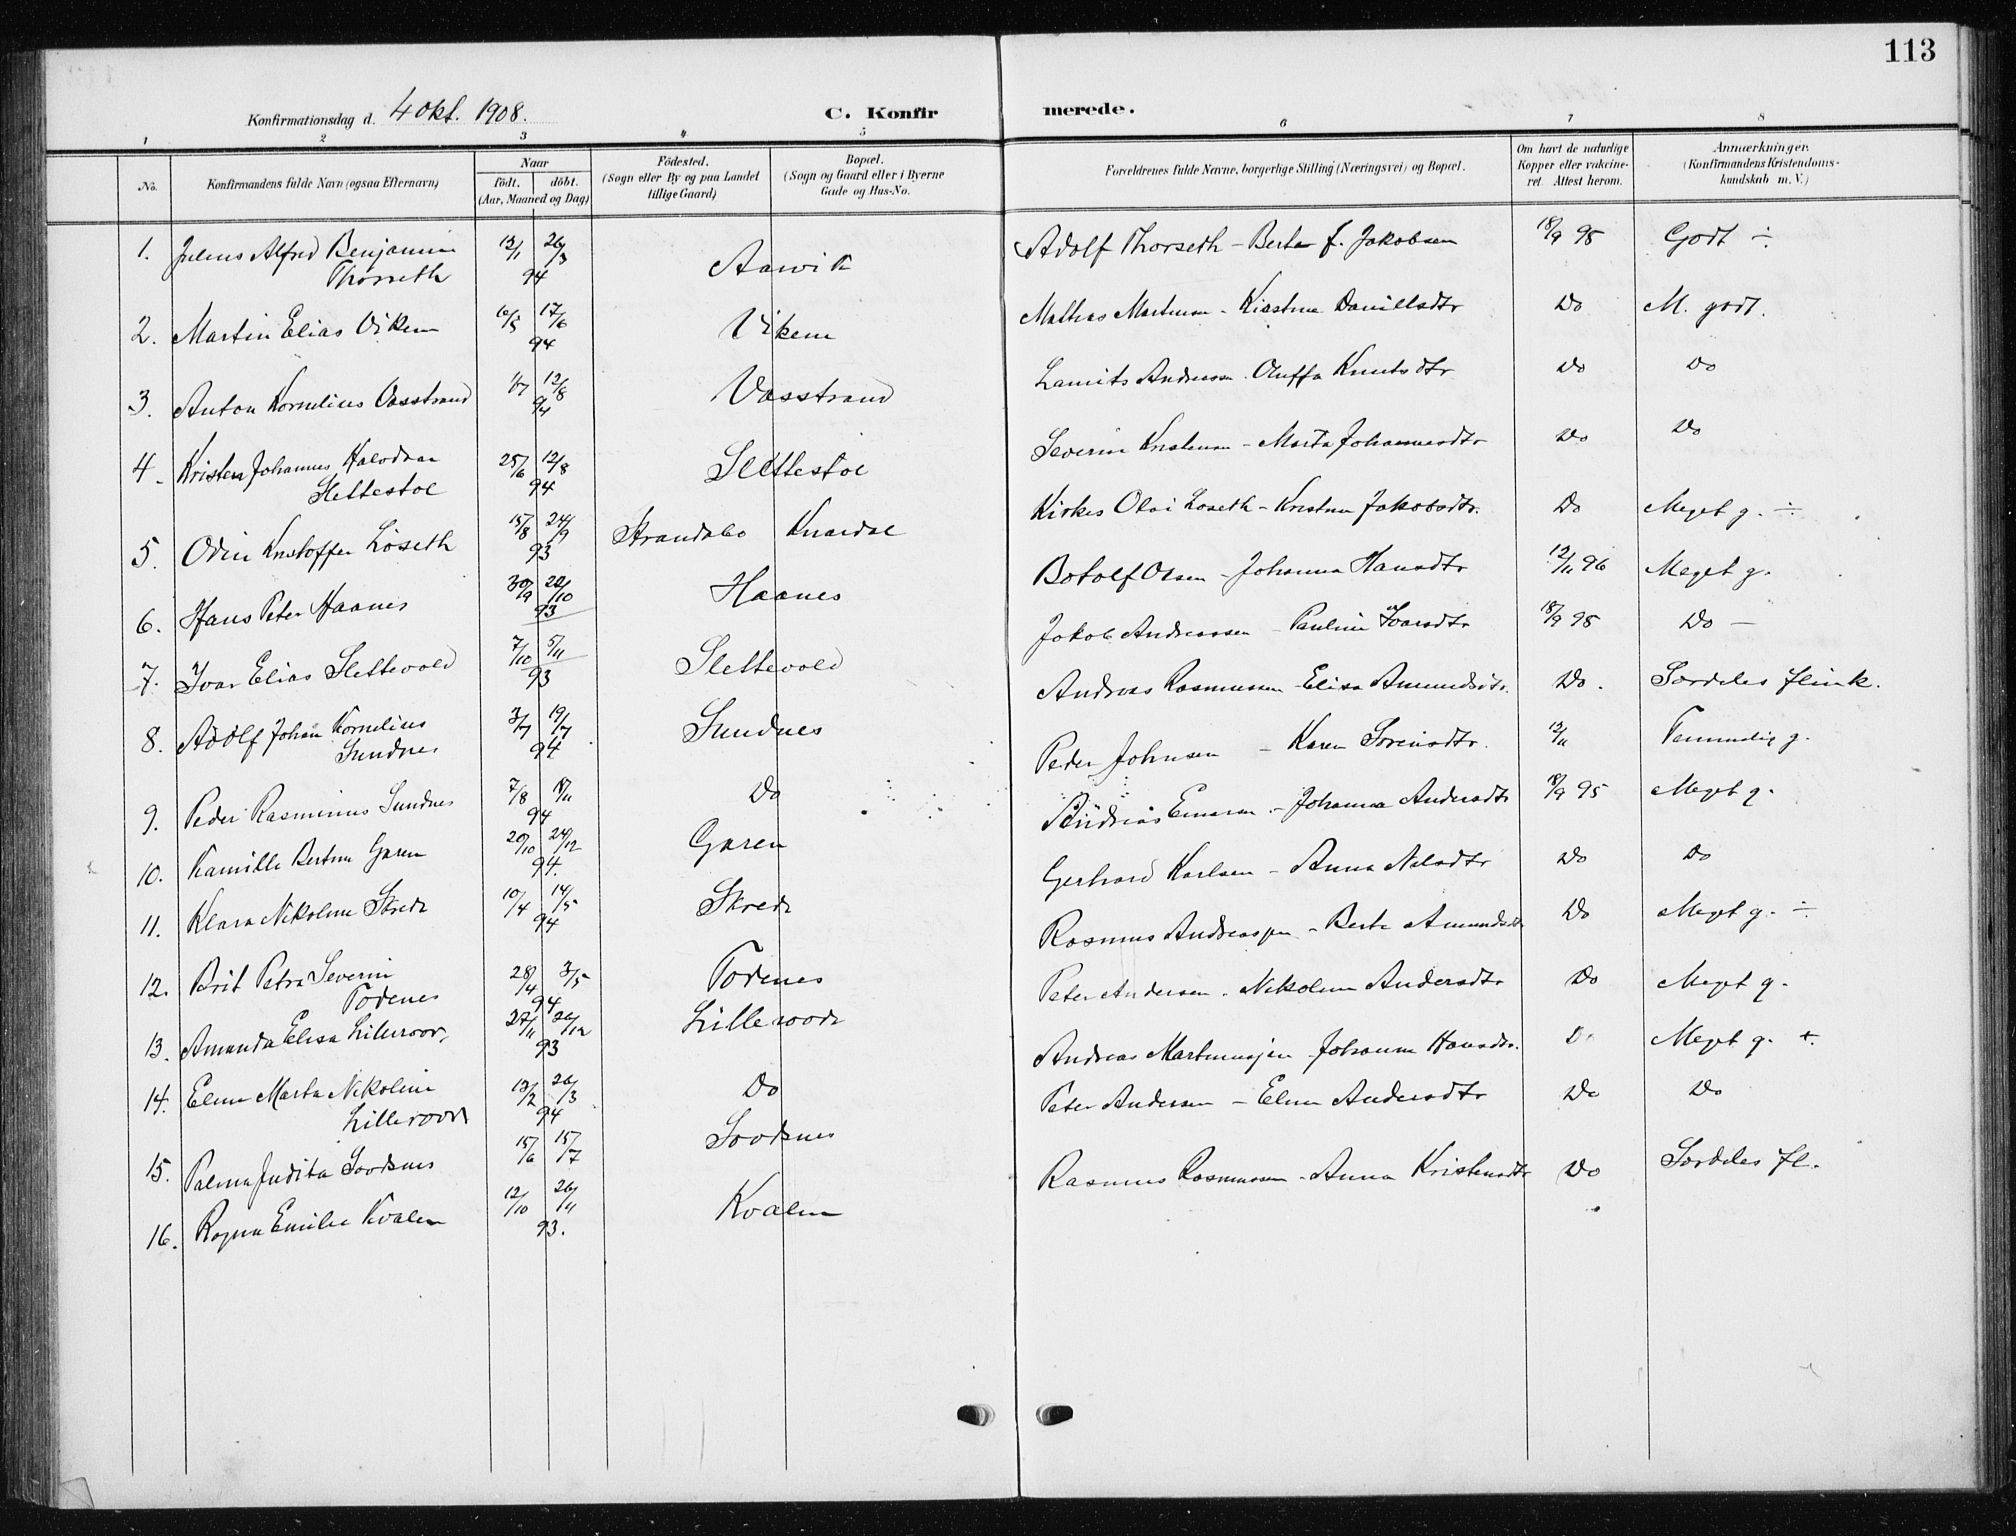 113
Konfirmationsdag d. 4 okt. 1908.
C. Konfir merede.
1 2 3 4 5 6 7 8
No.
Konfirmandens fulde Navn (ogsaa Efternavn)
Naar
födt. döbt.
(Aar, Maaned og Dag)
Födested.
(Sogn eller By og paa Landet
tillige Gaard)
Bopæl.
(Sogn og Gaard eller i Byerne
Gade og Hus-No.
Forældrenes fulde Navne, borgerlige Stilling (Næringsvei) og Bopæl.
Om havt de naturlige
Kopper eller vakcine-
ret. Attest herom.
Anmærkninger.
(Konfirmandens Kristendoms-
kundskab m. V.)
1. Julius Alfred Benjamin 13/1 26/3 Aarvik Adolf Thorseth - Berte f. Jakobsen 18/9 95 Godt ÷
Thorseth 94
2. Martin Elias Viken 16/5 17/6 Viken Mathias Martinsen - Kirstine Danielsdtr Do M. godt.
94
3. Anton Kornelius Vasstrand 1/7 12/8 Vasstrand Andreassen Oluffa Knutsdtr Do Do
94
4. Kristen Johannes Halvdan 25/6 12/8 Slettestøl Severin Kristensen - Marta Johannesdtr Do Do
Slettestøl 94
5. Odin Kristoffer Löseth 15/8 24/9 Strandabo Knardal Kirkes. Olai Løseth - Kristine Jakobsdtr. Do Meget g. ÷
93
6. Hans Peter Haanes 30/9 22/10 Haanes Botolf Olsen - Johanna Hansdtr 12/11 96 Meget g.
93
7. Ivar Elias Slettevold 7/10 5/11 Slettevold Jakob Andreassen - Pauline Ivarsdtr 18/9 95 Do -
93
8. Adolf Johan Kornelius 3/7 19/7 Sundnes Andreas Rasmussen - Elisa Amundsdtr. Do. Særdeles flink.
Sundnes 94
9. Peder Rasminus Sundnes 7/8 18/11 Do Peder Johnsen - Karen Sörensdtr. 12/11 Temmelig g.
94
10. Kamilla Bertine Garen 20/10 24/12 Garen Andreas - Johanna Andersdtr 18/9 95 Meget g.
94.
11. Klara Nikoline Skrede 10/4 14/5 Skrede Gerhard Karlsen - Anna Nilsdtr Do Do
94
12. Brit Petra Severin 28/4 3/5 Todenes Rasmus Andreassen - Berte Amundsdtr Do Meget g. ÷
Todenes 94
13. Amanda Elisa Lillerovde 27/11 26/12 Lillerovde Peter Andersen. Nikoline Andersdtr Do Meget g.
93
14. Eline Marta Nikoline 13/2 26/3 Do Andreas Martinussen Johanne Hansdtr. Do Meget g. +.
Lillerovde 94
15. Palma Judita Sordsnes 15/6 15/7 Sordsnes Peter Andersen - Eline Andersdtr Do Do
16. Ragna Emilie Kvalen 12/10 26/11 Kvalen Rasmus Rasmussen - Anna Kristensdtr Do Særdeles fl.
93.